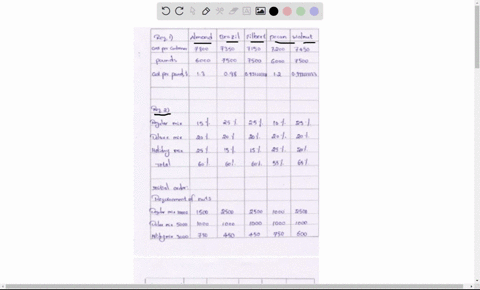 Req 1) Almond Brazil Filbert Pecan Walnut
Cost per container 7800 7350 7150 7200 7450
pounds 6000 7500 7500 6000 7500
Cost per pounds 1.3 0.98 1.2
Req 2)
Regular mix 15% 25% 25% 10% 25%
Deluxe mix 20% 20% 20% 20% 20%
Holiday mix 25% 15% 15% 25% 20%
Total 60% 60% 60% 55% 65%
Initial order:
Requirement of nuts
Regular mix 10000 1500 2500 2500 1000 2500
Deluxe mix 5000 1000 1000 1000 1000 1000
Holiday mix 3000 750 450 450 750 600